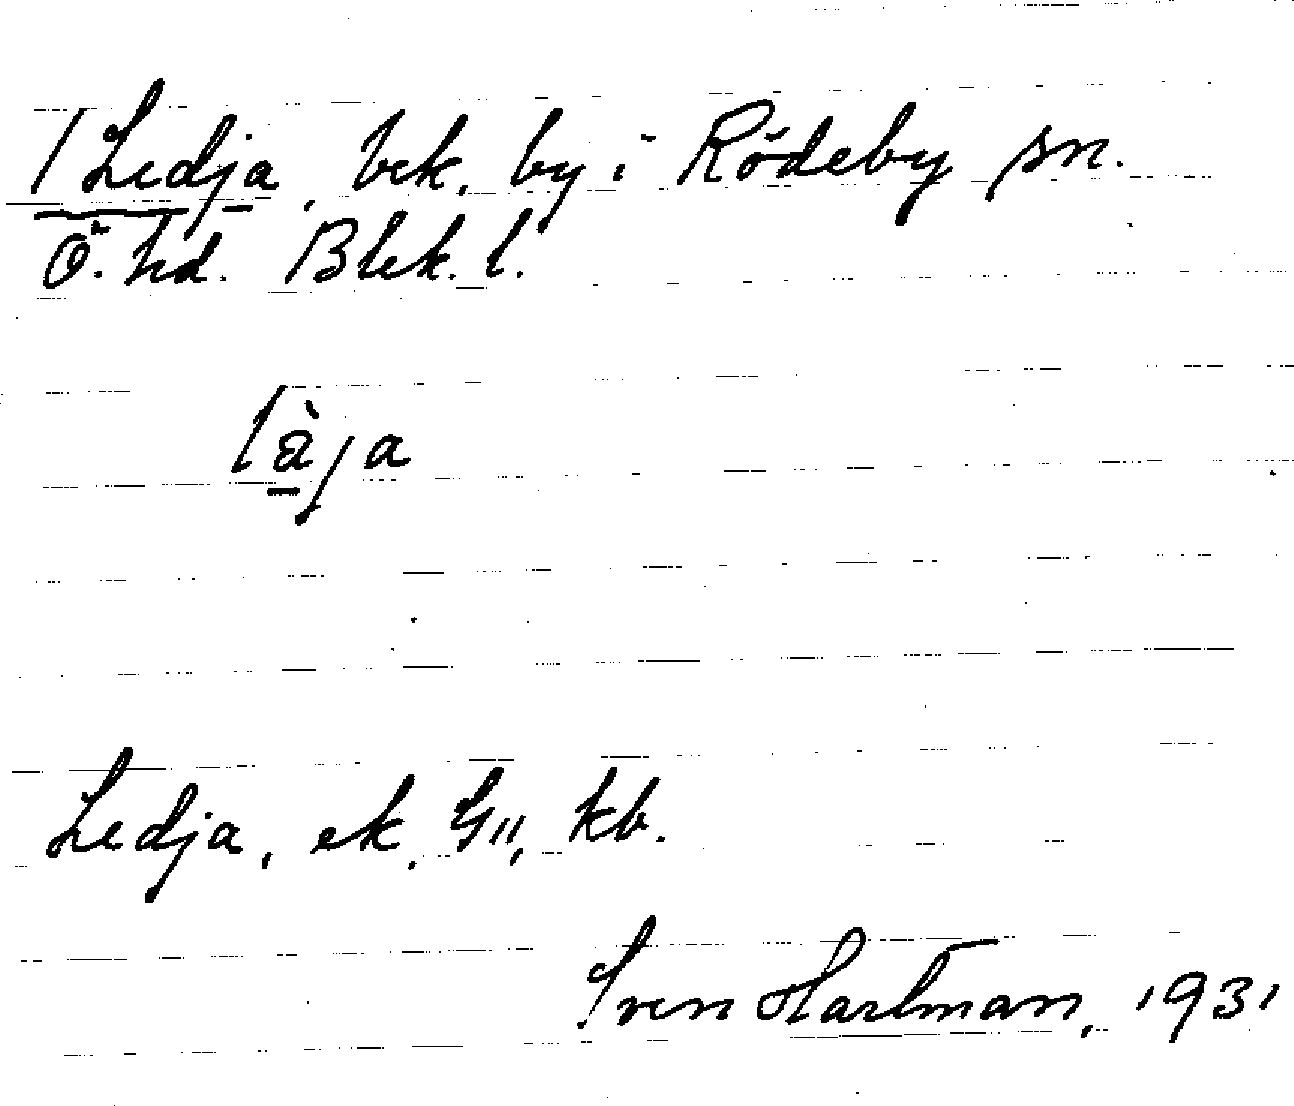 / Ledja, bek. by i Rödeby sn.
Ö. hd. Blek. l.
l<u>à</u>ja
Ledja, ek. G11, kb.
Sven Hartman, 1931